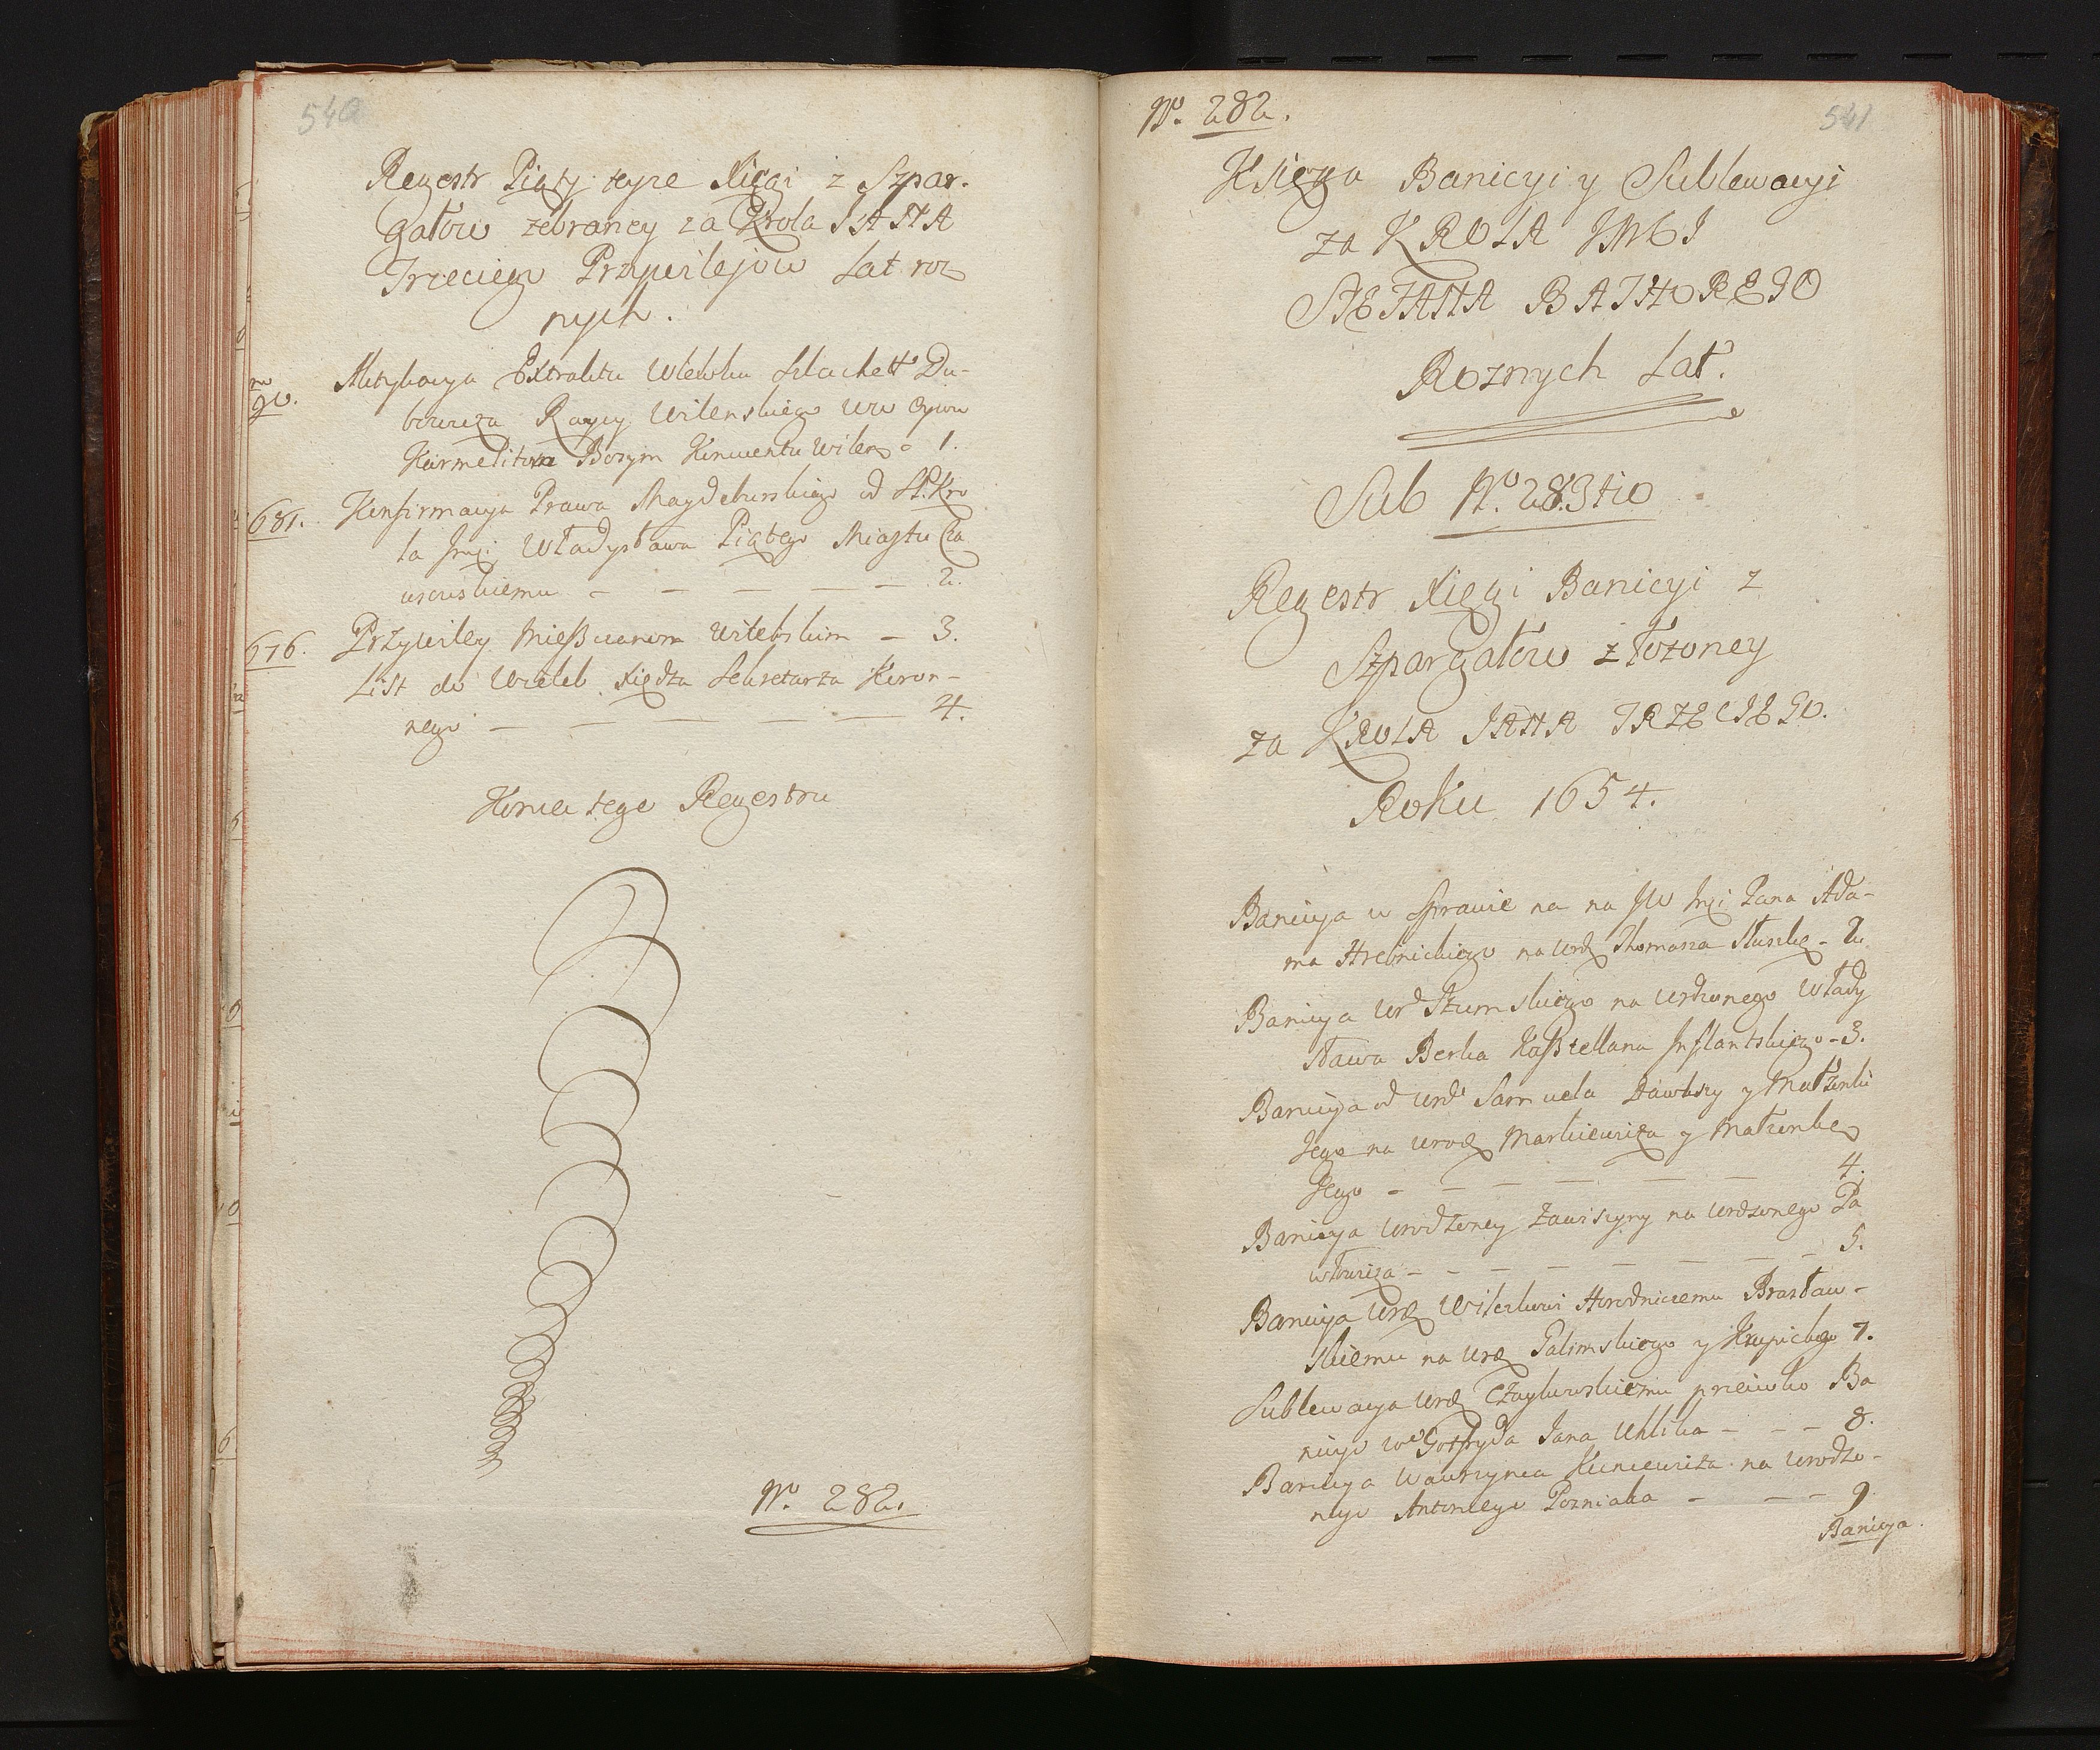 540
Regestr Piąty teyże Xięgi z Szpar-
gałow zebraney za Krola JANA
Trzeciego Przywilejow Lat roz-
nych.
90.
Extraktu Wlewku Szlachett Du-
bowicza Raycy Wilenskiego WW Oycom
Karmelitom Bosym Konwentu Wilen 1.
681. Konfirmacya Prawa Magdeburskiego od
la Jmci Władysława Piątego Miastu Cza
usowskiemu — — — — — 2.
676. Przywiley Mieszczanom Witebskim — 3.
List do Wieleb Xiędza Sekretarza Koron-
nego — — — — — 4.
Koniec tego Regestru
No. 282.
No. 282.
541
Księga Banicyi y Sublewacyi
za KROLA JMCI
STEFANA BATHOREGO
Roznych Lat.
Sub No. 283tio
Regestr Xięgi Banicyi z
Szpargałow złożoney
za KROLA JANA TRZECIEGO.
Roku 1654.
Banicya w Sprawie na na JW Jmci Pana Ada-
ma Hrebnickiego na Urodz Thomasza Słuszkę - 2.
Banicya Ur Szumskiego na Urdzonego Włady
sława Berka Kasztellana Inflantskiego - 3.
Banicya od Urd Samuela y Małżonki
Jego na Urodz Markiewicza y Małżonkę
Jego — — — — — — 4.
Banicya Urodzoney Zawiszyny na Urdzonego Pa
włowicza — — — — — — 5.
Banicya Urdz Horodniczemu Brasław-
skiemu na Urdz Galimskiego y Krupickego 7.
Sublewacya Urdz Czaykowskiemu przeciwko Ba
nicyi Gotfryda Jana Uhlika — — — 8.
Banicya Wawrzynca Kuncewicza na Urodzo-
nego Antoniego Pozniaka — — — 9
Banicya.